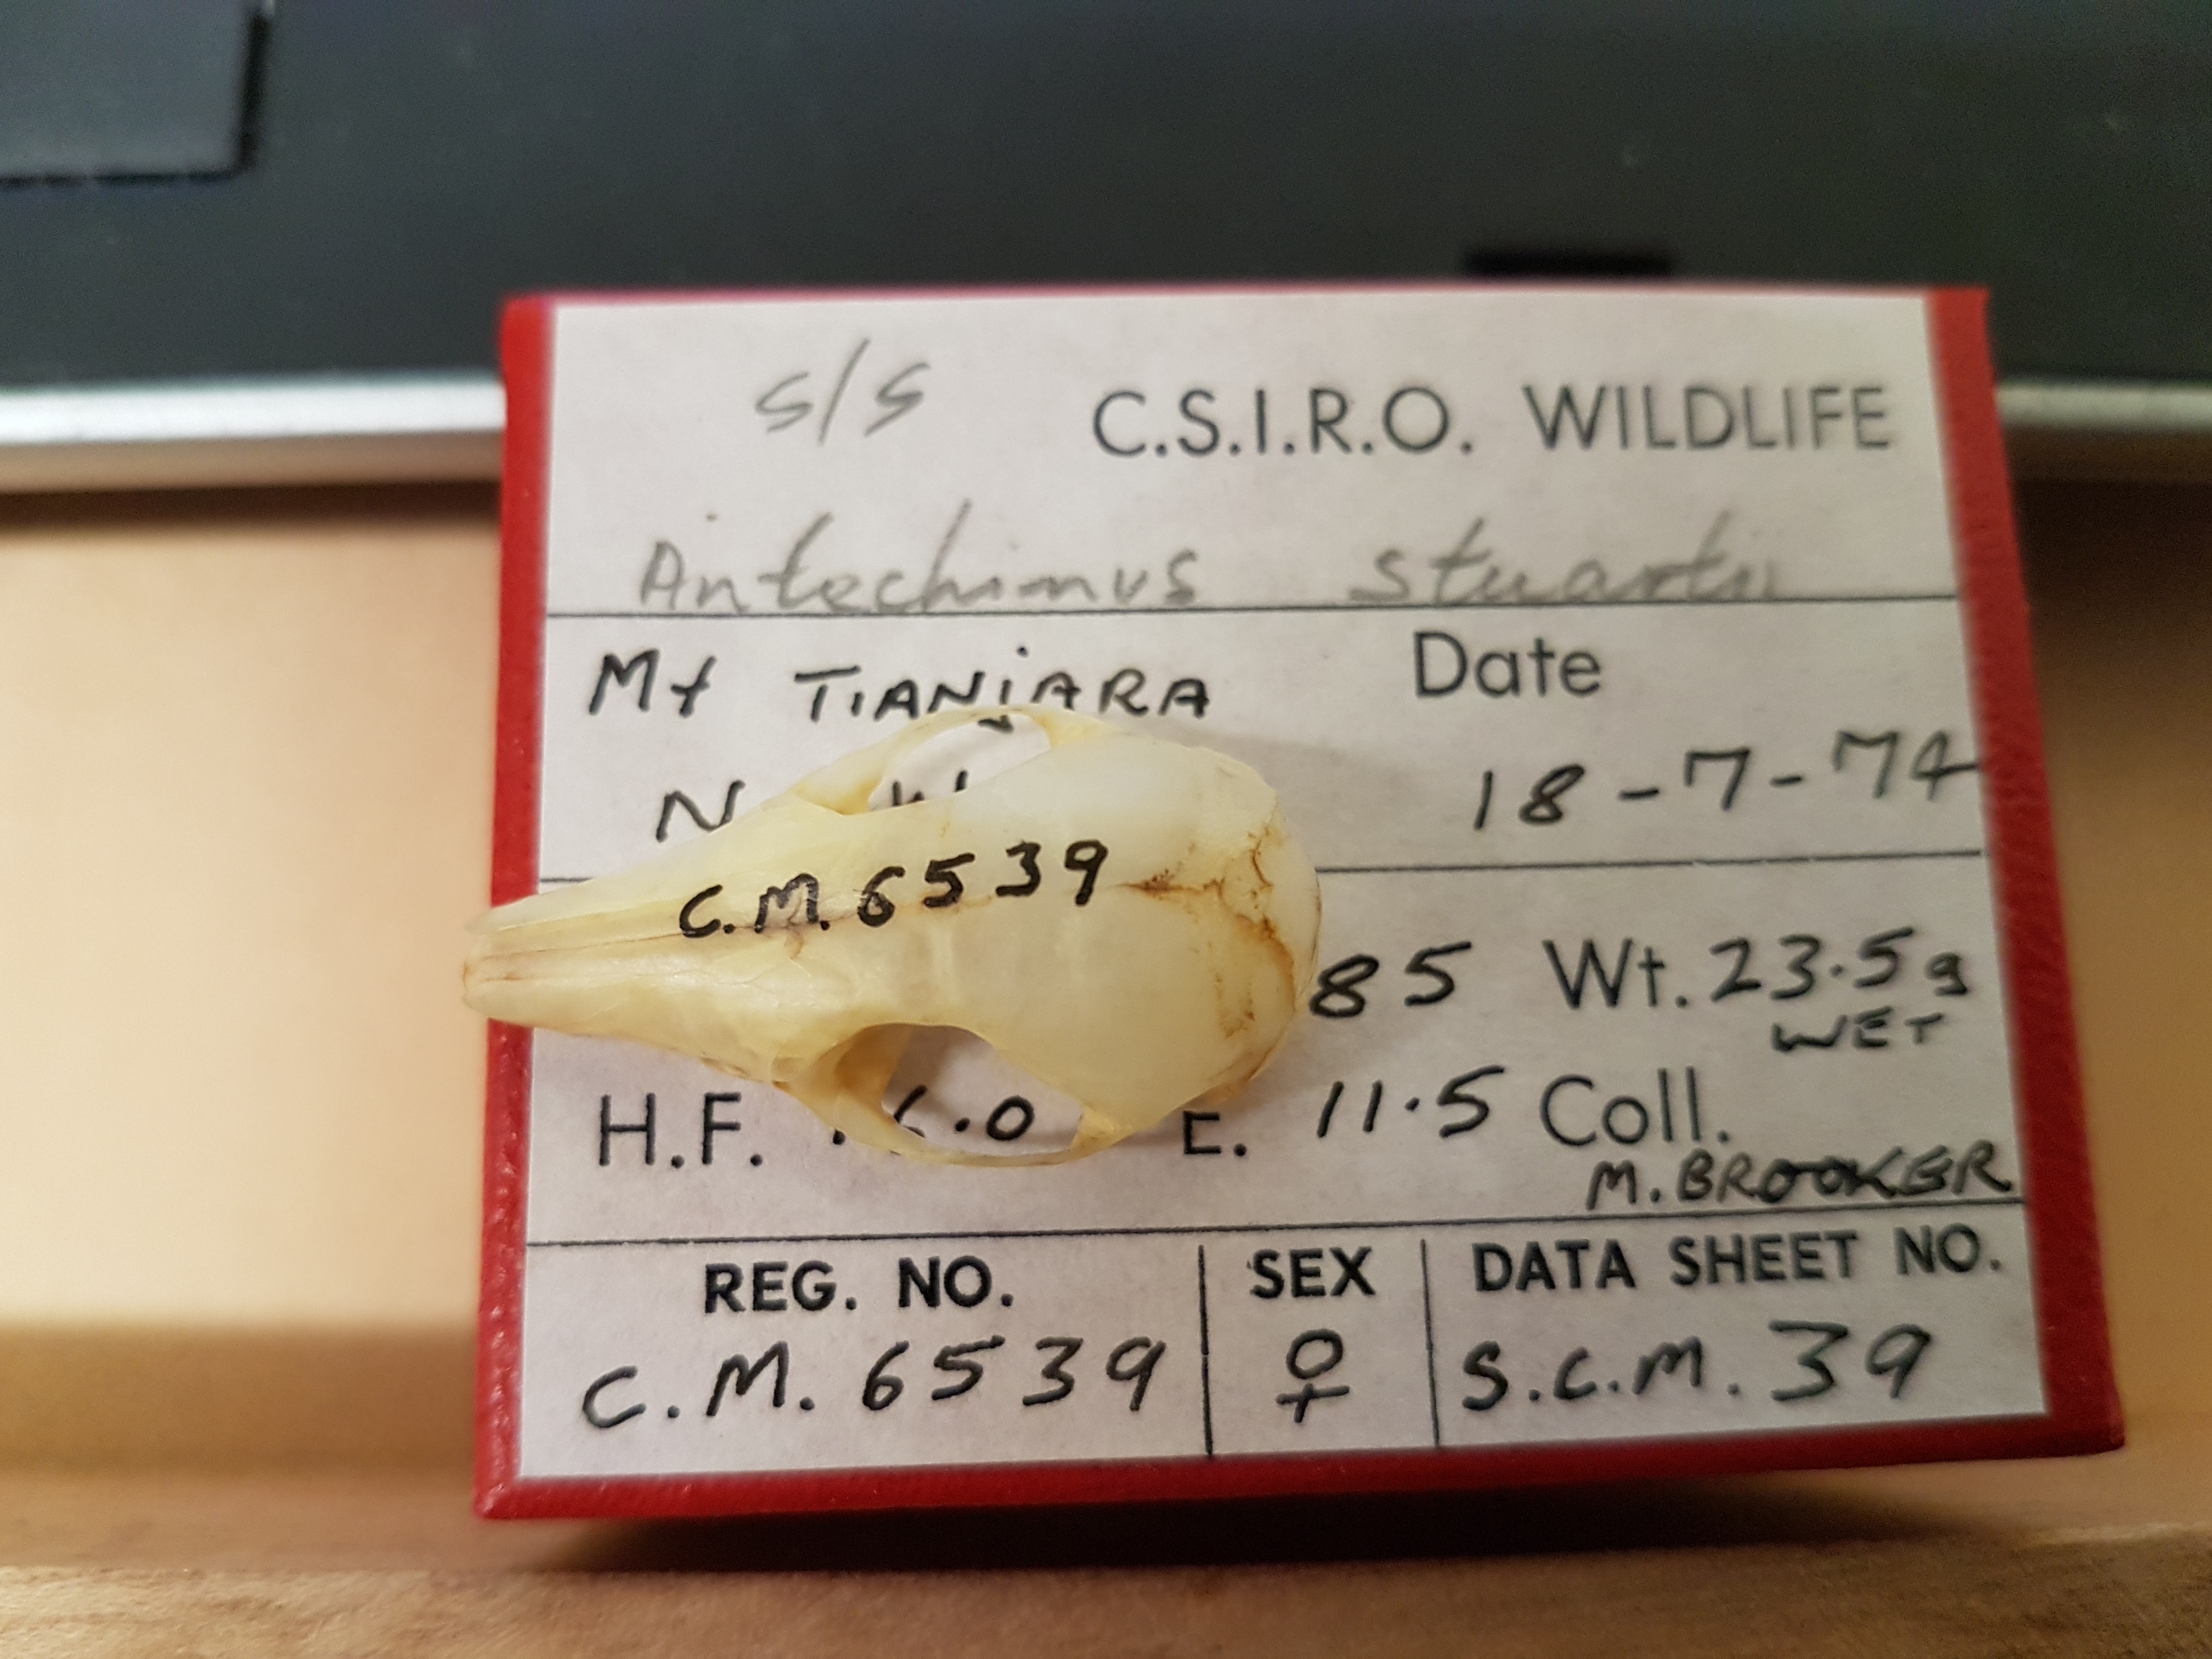 S/S C.S.I.R.O. WILDLIFE
Antechinus stuartii
Mt TIANJARA Date
N 18-7-74
85 Wt. 23.5g
WET
H.F. .0 E. 11.5 Coll.
M. BROOKER
REG. NO. SEX DATA SHEET NO.
C.M. 6539 ♀ S.C.M. 39
C.M. 6539